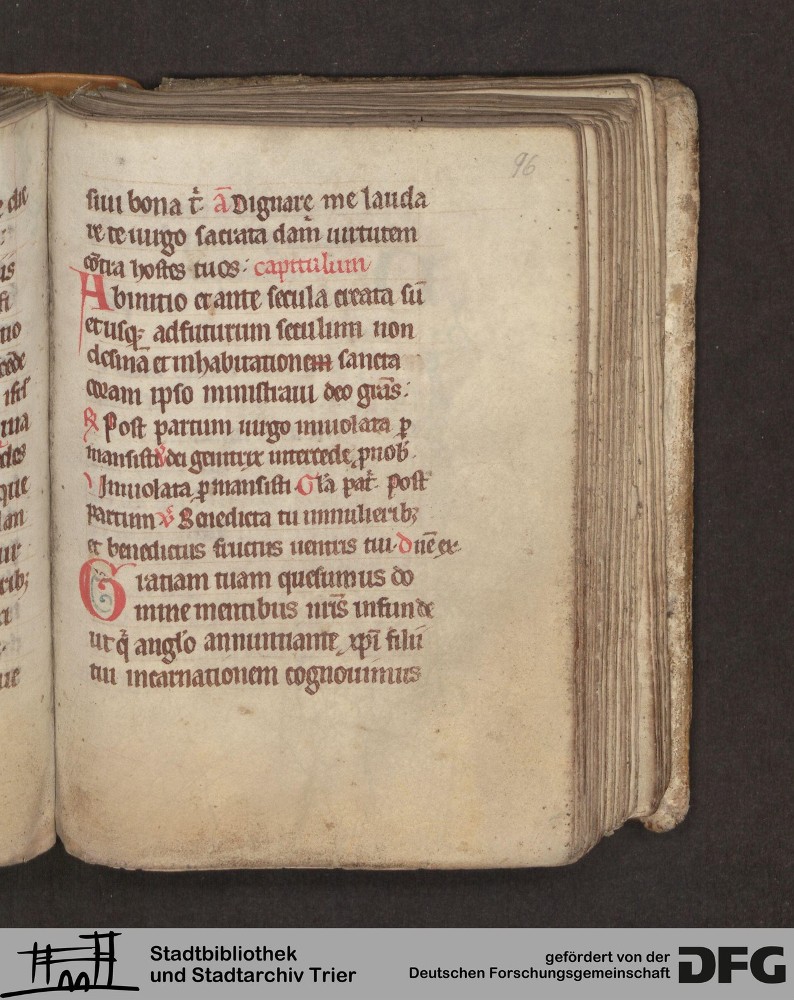 96
siui bona t̄ ā Dignare me lauda
re te uirgo sacrata da m̄ uirtutem
cōtra hostes tuos: capitulum
Ab initio et ante secula creata sū
et usq; ad futurum seculum non
desinā et in habitationem sancta
coram ipso ministraui deo grās:
R Post partum uirgo inuiolata p
mansisti dei genitrix intercede p nob̄
V Inuiolata p mansisti Gla pat̄ Post
partum v̄ Benedicta tu in mulierib;
et benedictus fructus uentris tui. dn̄e ex
Gratiam tuam quesumus do
mine mentibus nr̄is infunde
ut q̄ anglo annuntiante xp̄i filii
tui incarnationem cognouimus
Stadtbibliothek
und Stadtarchiv Trier
gefördert von der
Deutschen Forschungsgemeinschaft
DFG